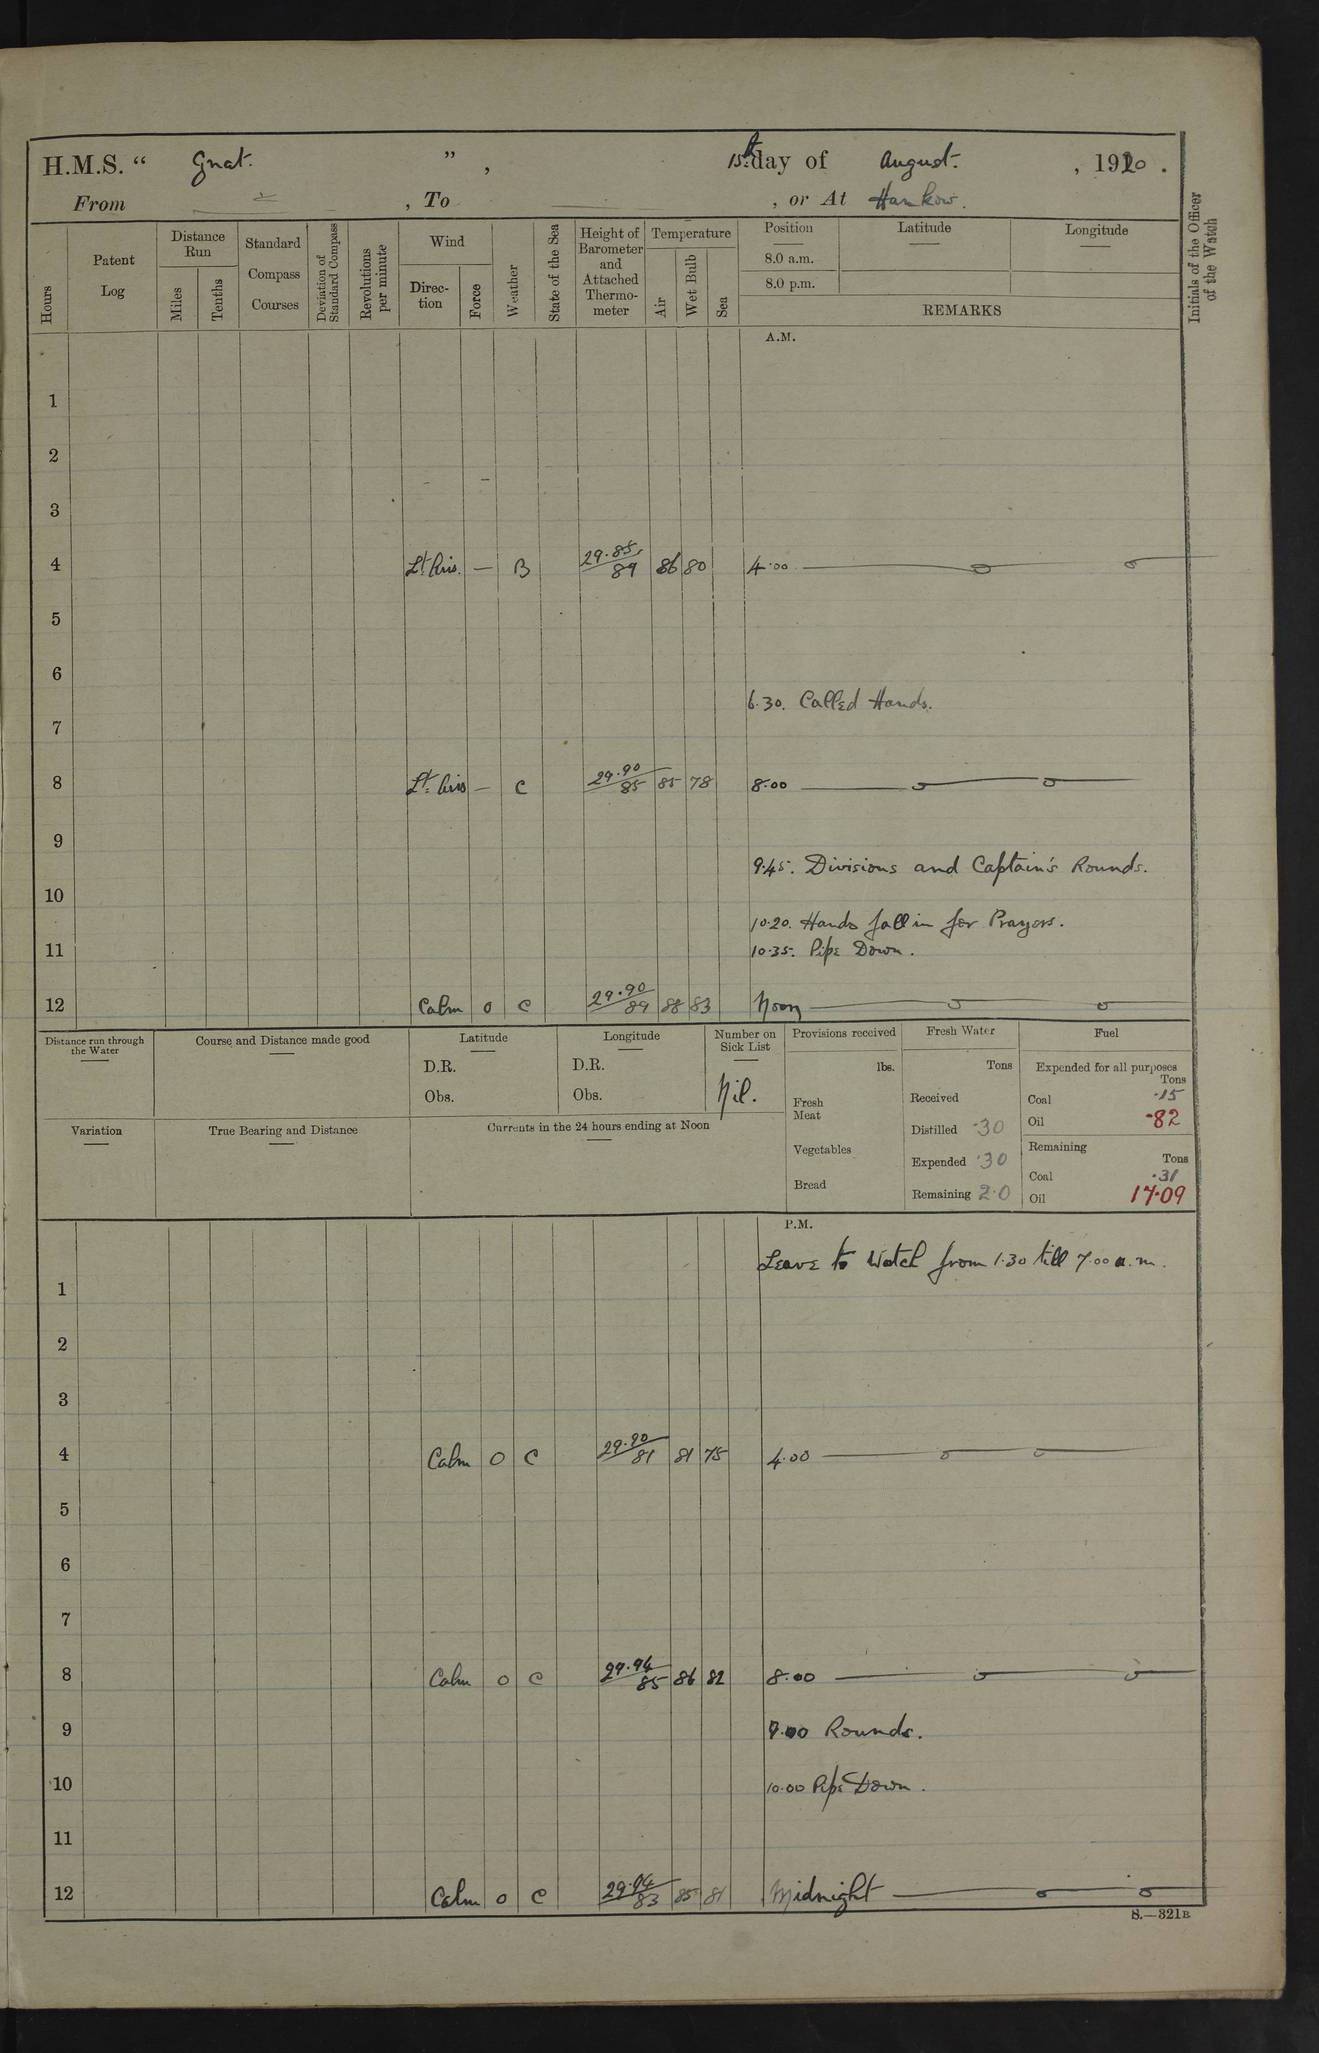 H.M.S. “ Gnat. ” , 15th day of August. , 1920 .
From — , To — , or At Hankow.
Hours
Patent Log
Distance Run
Miles
Tenths
Standard Compass Courses
Deviation of Standard Compass
Revolutions per minute
Wind
Direction
Force
Weather
State of the Sea
Height of Barometer and Attached Thermometer
Temperature
Air
Wet Bulb
Sea
Position
8.0 a.m.
8.0 p.m.
Latitude
Longitude
REMARKS
Initials of the Officer of the Watch
A.M.
1
2
3
4 Lt. Airs. — B 29.85/89 86 80 4.00
5
6
6.30. Called Hands.
7
8 Lt. Airs — C 29.90/85 85 78 8.00
9
9.45. Divisions and Captain's Rounds.
10
10.20. Hands fall in for Prayers.
11 10.35. Pipe Down.
12 Calm 0 C 29.90/89 88 83 Noon
Distance run through the Water
Course and Distance made good
Latitude
D.R.
Obs.
Longitude
D.R.
Obs.
Number on Sick List
Nil.
Variation
True Bearing and Distance
Currents in the 24 hours ending at Noon
Provisions received
lbs.
Fresh Meat
Vegetables
Bread
Fresh Water
Tons
Received
Distilled .30
Expended .30
Remaining 2.0
Fuel
Expended for all purposes
Tons
Coal .15
Oil .82
Remaining
Tons
Coal .31
Oil 17.09
P.M.
Leave to Watch from 1.30 till 7.00 a.m.
1
2
3
4 Calm 0 C 29.90/81 81 75 4.00
5
6
7
8 Calm 0 C 29.94/85 86 82 8.00
9 9.00 Rounds.
10 10.00 Pipe Down.
11
12 Calm 0 C 29.94/83 85 81 Midnight
S.—321B